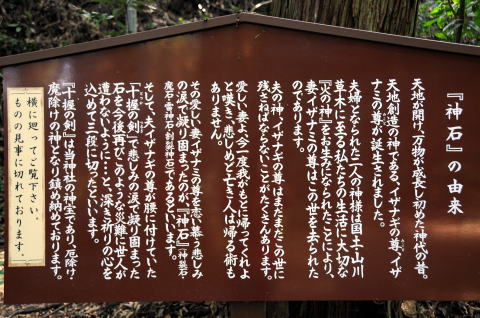 『神石』の由来
天地が開け、万物が成長し初めた神代の昔。
天地創造の神である、イザナギの尊、イザ
ナミの尊が誕生されました。
夫婦となられた二人の神様は国土・山川
草木に至る私たちの生活に大切な
『火の神』をお生みになられたことにより、
妻イザナミの尊はこの世を去られた
のであります。
夫の神、イザナギの尊はまだまだこの世に
残さねばならないことがたくさんあります。
愛しい妻よ、今一度我がもとに帰ってくれよ
と嘆き、悲しめど亡き人は帰る術も
ありません。
その愛しい妻イザナミの尊を恋い慕う悲しみ
の涙で凝り固まったのが、『神石』(神墓石
魔石・雷神石・割裂神石)であるといいます。
そして、夫イザナギの尊が腰に付けていた
「十握の剣」で悲しみの涙で凝り固まった
石を今後再びこのような災難に世人が
遭わないように…と、深き祈りの心を
込めて三段に切ったといいます。
『十握の剣』は当神社の神宝であり、厄除け・
魔除けの神となり鎮め納めております。
横に廻ってご覧下さい。
ものの見事に切れております。